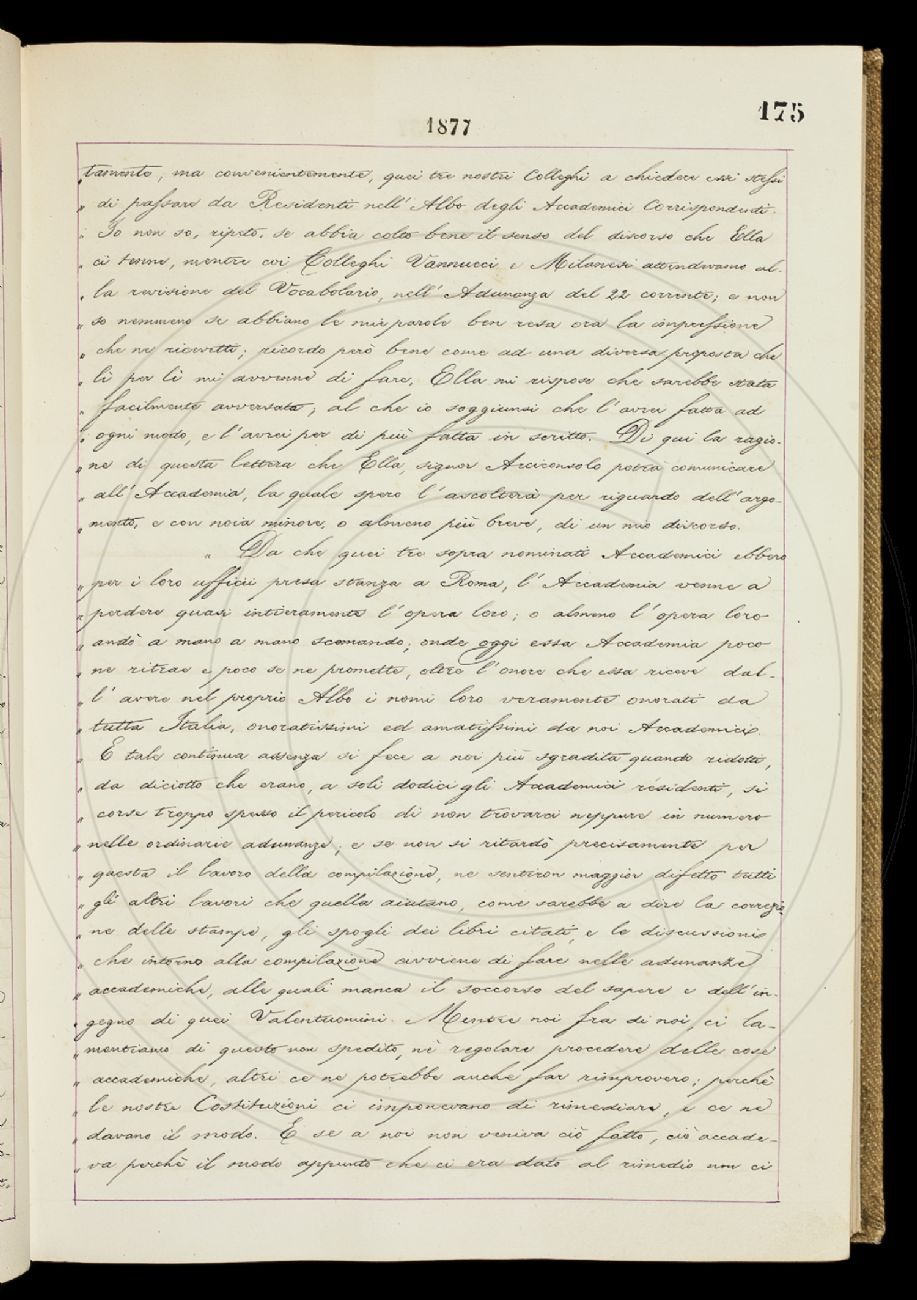 175
1877
„ tamente, ma convenientemente, quei tre nostri Colleghi a chiedere essi stessi
„ di passare da Residenti nell'Albo degli Accademici Corrispondenti.
„ Io non so, ripeto, se abbia colto bene il senso del discorso che Ella
„ ci tenne, mentre coi Colleghi Vannucci e Milanesi attendevamo al-
„ la revisione del Vocabolario, nell'Adunanza del 22 corrente; e non
„ so nemmeno se abbiano le mie parole ben resa ora la impressione
„ che ne ricevetti; ricordo però bene come ad una diversa proposta che
„ lì per lì mi avvenne di fare, Ella mi rispose che sarebbe stata
„ facilmente avversata, al che io soggiunsi che l'avrei fatta ad
„ ogni modo, e l'avrei per di più fatta in scritto. Di qui la ragio-
„ ne di questa lettera che Ella, signor Arciconsolo potrà comunicare
„ all'Accademia, la quale spero l'ascolterà per riguardo dell'argo-
„ mento, e con noia minore, o almeno più breve, di un mio discorso.
„ Da che quei tre sopra nominati Accademici ebbero
„ per i loro ufficii presa stanza a Roma, l'Accademia venne a
„ perdere quasi intieramente l'opera loro; o almeno l'opera loro
„ andò a mano a mano scemando; onde oggi essa Accademia poco
„ ne ritrae e poco se ne promette, oltre l'onore che essa riceve dal-
„ l'avere nel proprio Albo i nomi loro veramente onorati da
„ tutta Italia, onoratissimi ed amatissimi da noi Accademici.
„ E tale continua assenza si fece a noi più sgradita quando ridotti,
„ da diciotto che erano, a soli dodici gli Accademici residenti, si
„ corse troppo spesso il pericolo di non trovarci neppure in numero
„ nelle ordinarie adunanze; e se non si ritardò precisamente per
„ questa il lavoro della compilazione, ne sentiron maggior difetto tutti
„ gli altri lavori che quella aiutano, come sarebbe a dire la correzio-
„ ne delle stampe, gli spogli dei libri citati e le discussioni
„ che intorno alla compilazione avviene di fare nelle adunanze
„ accademiche, alle quali manca il soccorso del sapere e dell'in-
„ gegno di quei Valentuomini. Mentre noi fra di noi, ci la-
„ mentiamo di questo non spedito, nè regolare procedere delle cose
„ accademiche, altri ce ne potrebbe anche far rimprovero; perchè
„ le nostre Costituzioni ci imponevano di rimediare, e ce ne
„ davano il modo. E se a noi non veniva ciò fatto, ciò accade-
„ va perchè il modo appunto che ci era dato al rimedio non ci